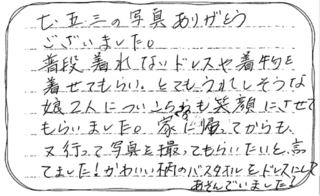 七、五、三の写真ありがとう
ございました。
普段着れないドレスや着物を
着せてもらい、とてもうれしそうな
娘2人についつられも笑顔にさせて
もらいました。家に帰ってからも、
又行って写真を撮ってもらいたいと言っ
てました!かわいい柄のバスタオルをドレスにして
あそんでいました♪